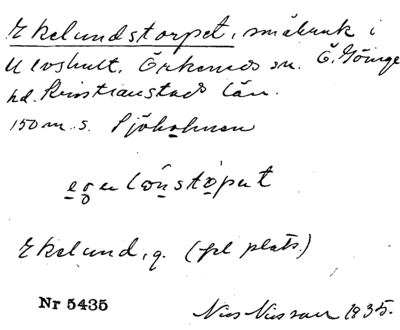 Ekelundstorpet, småbruk i
Ulvshult, Örkeneds sn. Ö. Göinge
hd. Kristianstads län.
150 m. s. Sjöholmen
Ekelund, g. (fl plats)
Nr 5435
Nils Nilsson 1935.